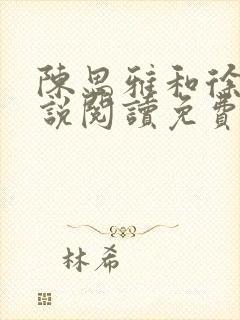 陳思雅和徐
說閱讀免費
林希